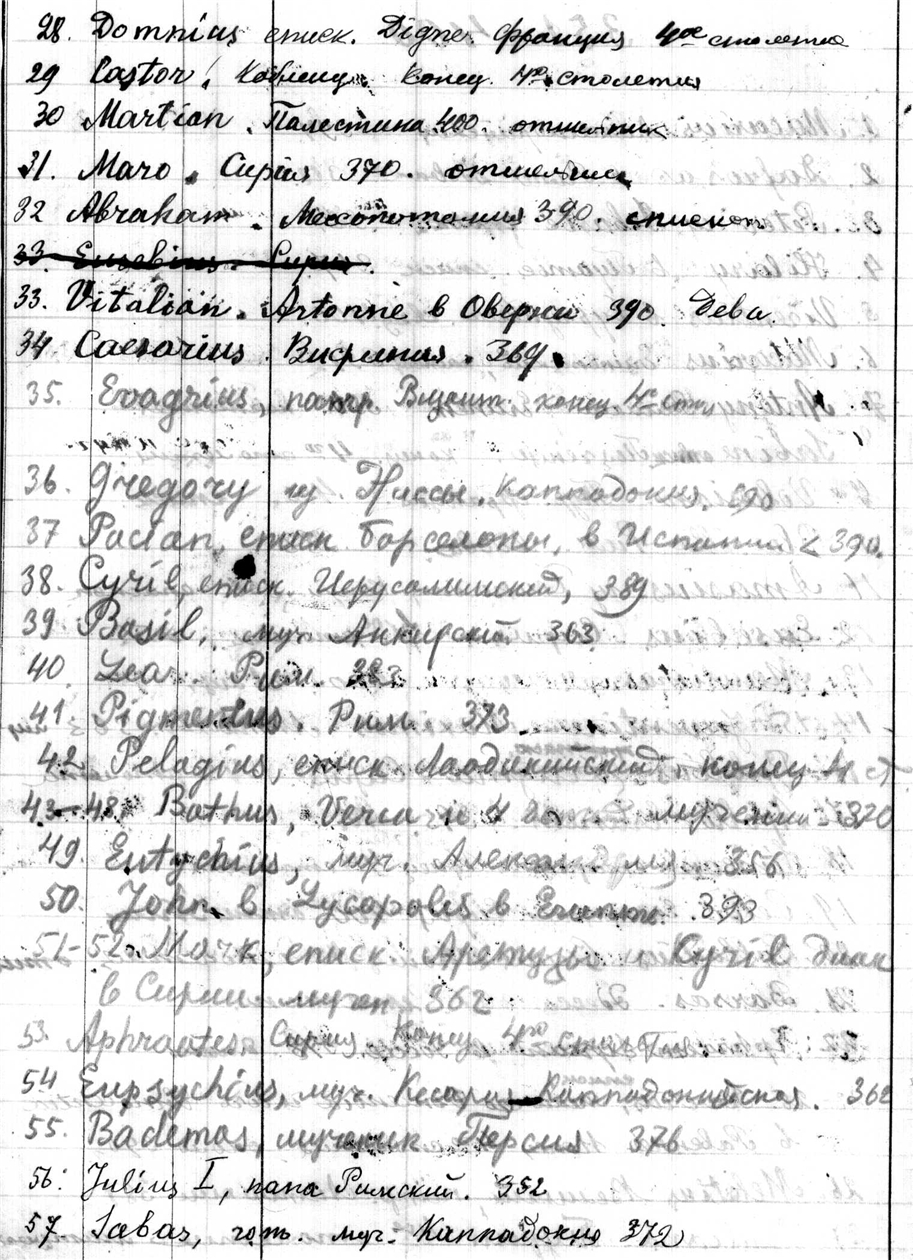 28. Domnius еписк. Digne. Франция 4ое столетие
29 Castor, Кобленц. Конец 4го столетия
30 Martian. Палестина 400. отшельник
31. Maro. Сирия 370. отшельник
32 Abraham. Мессопотамия 390. епископ
33. Eusebius. Сирия.
33. Vitalian. Artonne в Оверни 390. Дева
34 Caesarius. Вифиния. 369.
35. Evagrius, патр. Визант. конец 4го ст.
36. Gregory из Ниссы. Каппадокия.
37 Pacian, еписк Барселоны, в Испании < 390.
38. Cyril еписк. Иерусалимский, 389
39 Basil, муч. Анкирский 363
40 Рим.
41 Pigmenius. Рим 373.
42 Pelagius, еписк Лаодикийский конец 4 ст
43-48 Bathus, Verca и 4 370
49 Eutychius, муч. 356
50. John в Lycopolis в Египте. 393
51-52. Mark, еписк. Аретузы и Cyril диак
в Сирии мучен 362
53. Aphraates Сирия Конец 4го
54 Eupsychius, муч. Кесария Каппадокийская. 362
55. Bademas, мученик Персия 376
56. Julius I, папа Римский. 352
57. Sabas, гот. муч. Каппадокия 372